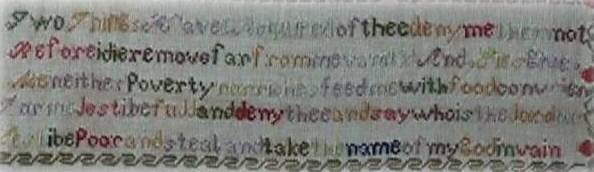 Two Things have I required of thee deny me them not
Before i die remove far from me vanity And Lies Give
Me neither Poverty nor riches feed me with food convenien
For me Lest i be full and deny thee and say who is the Lord or
Lest i be Poor and steal and take the name of my God in vain